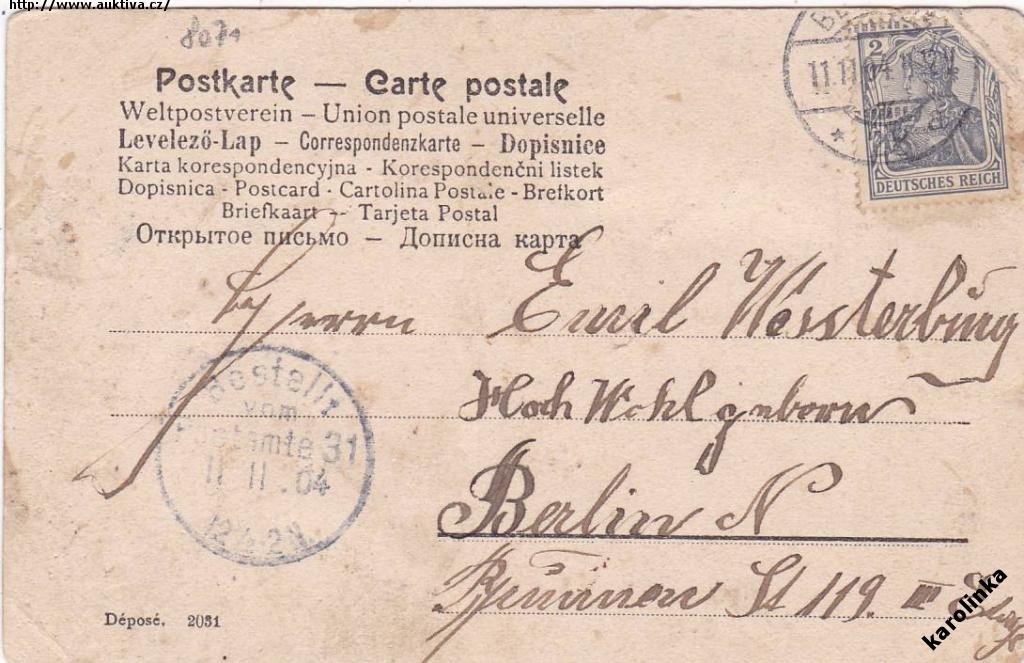 http://www.auktiva.cz/
8071
Postkarte — Carte postale
Weltpostverein – Union postale universelle
Levelező-Lap – Correspondenzkarte – Dopisnice
Karta korespondencyjna - Korespondenčni listek
Dopisnica - Postcard - Cartolina Postale - Brefkort
Briefkaart -- Tarjeta Postal
Открытое письмо — Дописна карта
2
DEUTSCHES REICH
11.11.04
Herrn Emil Wessterburg
Hoch Wohlgeborn
Berlin N
Brunnen St 119. III
Bestellt
vom
Postamte 31
11 11 .04
Déposé. 2031
karolinka